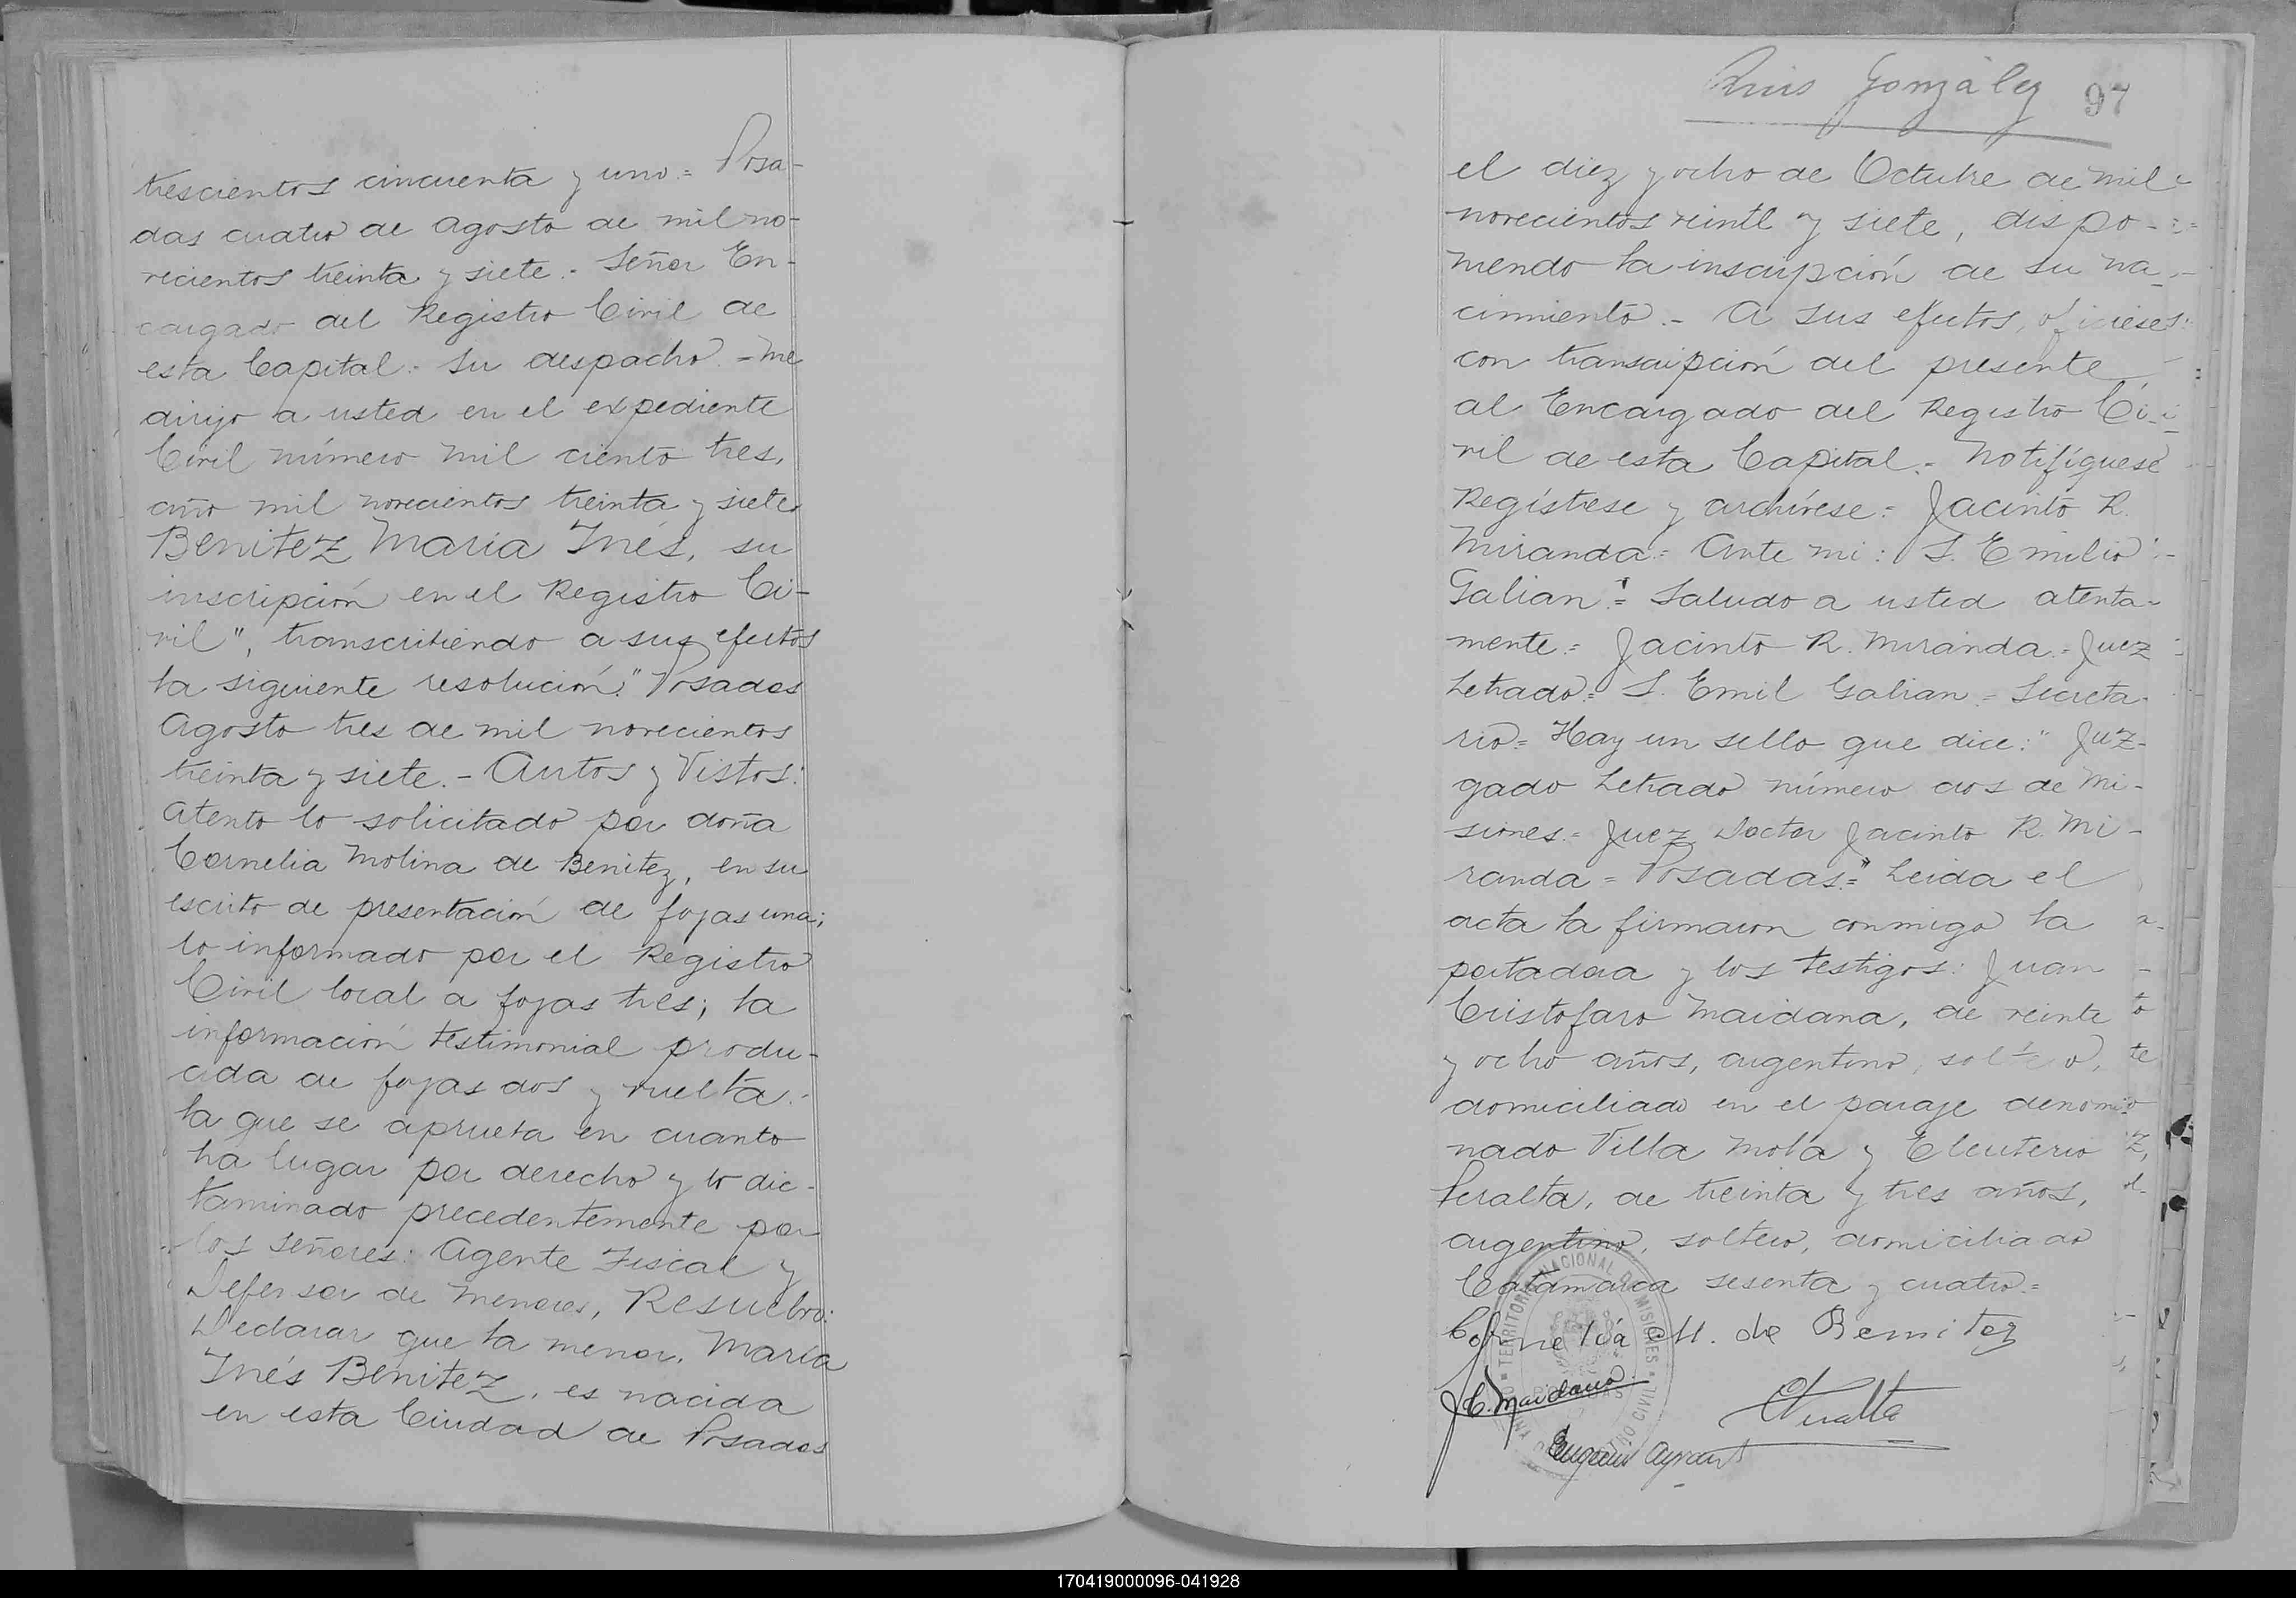 trescientos cincuenta y uno = Posa-
das cuatro de agosto de mil no-
vecientos treinta y siete.- Señor En-
cargado del Registro Civil de
esta Capital.- Su despacho.- Me
dirijo a usted en el expediente
Civil número mil ciento tres,
año mil novecientos treinta y siete
Benitez María Inés, su
inscripción en el Registro Ci-
vil", transcribiendo a sus efectos
la siguiente resolución:" Posadas
Agosto tres de mil novecientos
treinta y siete.- Autos y Vistos:
Atento lo solicitado por doña
Cornelia Molina de Benitez, en su
escrito de presentación de fojas una;
lo informado por el Registro
Civil local a fojas tres; la
información testimonial produ-
cida de fojas dos y vuelta.-
la que se aprueba en cuanto
ha lugar por derecho y lo dic-
taminado precedentemente por
los señores: Agente Fiscal y
Defensor de Menores, Resuelvo:
Declarar que la menor, María
Inés Benitez, es nacida
en esta Ciudad de Posadas
González 97
el diez y ocho de Octubre de mil
novecientos veinte y siete, dispo-
niendo la inscripción de su na-
cimiento.- A sus efectos, ofíciese
con transcripción del presente
al Encargado del Registro Ci-
vil de esta Capital.- Notifíquese
Regístrese y archívese = Jacinto R.
Miranda = Ante mi: S. Emilio
Galian" = Saludo a usted atenta-
mente = Jacinto R. Miranda = Juez
Letrado = S. Emil Galian = Secreta-
rio = Hay un sello que dice:" Juz-
gado Letrado número dos de Mi-
siones = Juez Doctor Jacinto R. Mi-
randa = Posadas" = Leida el
acta la firmaron conmigo la
portadora y los testigos: Juan
Cristofaro Maidana, de veinte
y ocho años, argentino, soltero,
domiciliado en el paraje denomi-
nado Villa Mola y Eleuterio
Peralta, de treinta y tres años,
argentino, soltero, domiciliado
Catamarca sesenta y cuatro =
Cornelia M. de Benitez
J.C. Maidana
EPeralta
Eugenio
TERRITORIO NACIONAL DE MISIONES
CIVIL
170419000096-041928